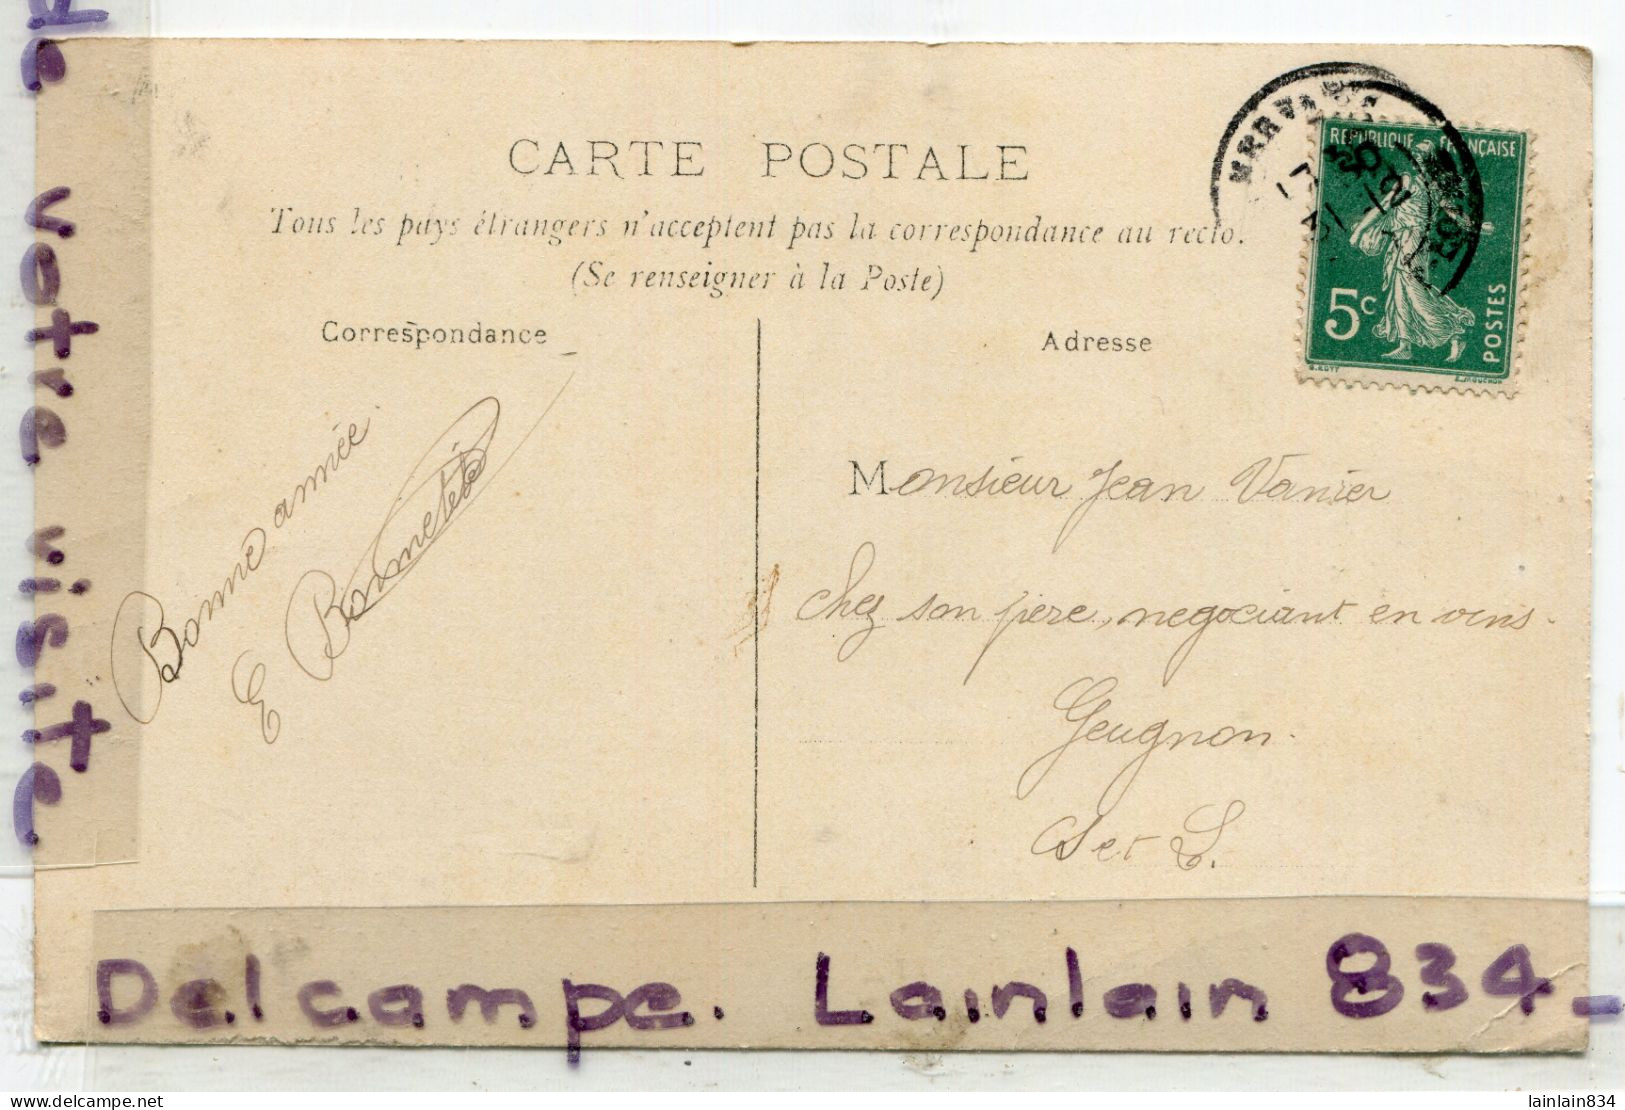 CARTE POSTALE
Tous les pays étrangers n'acceptent pas la correspondance au recto.
(Se renseigner à la Poste)
Correspondance
Adresse
REPUBLIQUE FRANÇAISE
5c
POSTES
O. ROTY
E. MOUCHON
Bonne année
E
Monsieur Jean Vanier
chez son père, negociant en vins.
Geugnon.
S et L.
de votre visite
Delcampe. Lainlain 834_
delcampe.net
lainlain834